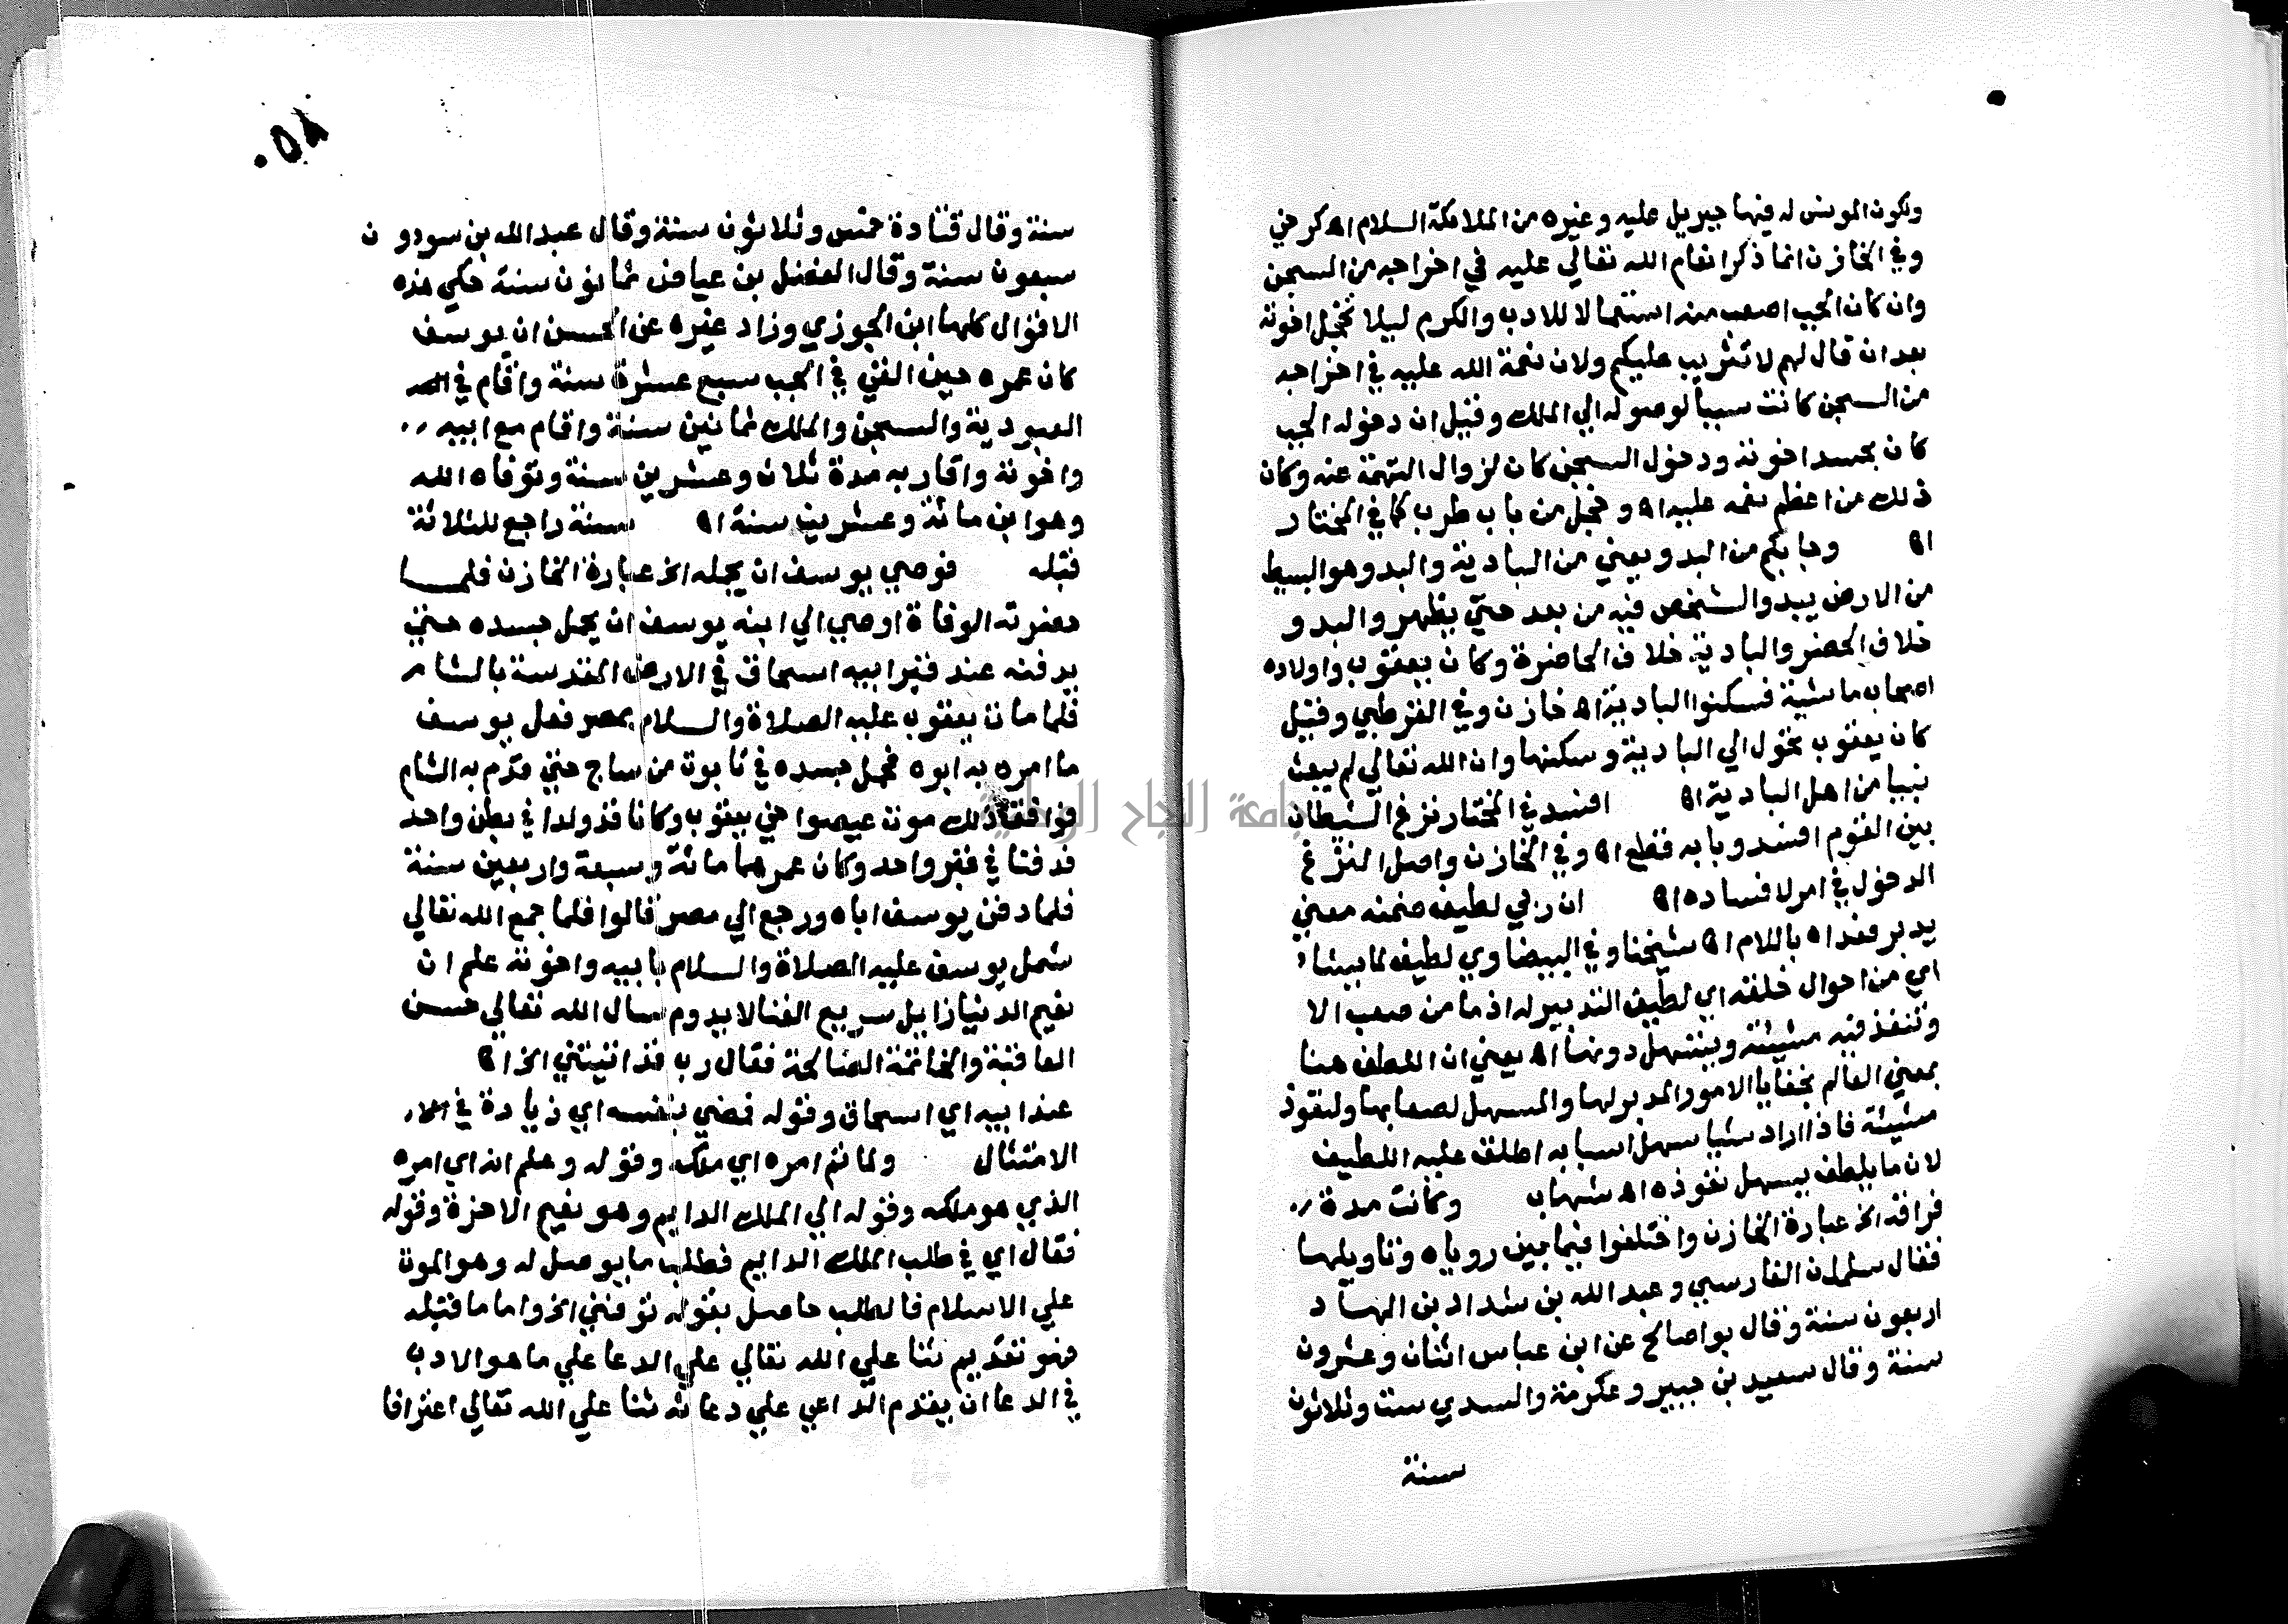 ولكون المونس له فيها جبريل عليه وغيره من الملائكة السلام اه كرخي
وفي الخازن انما ذكر انعام الله تعالي عليه في اخراجه من السجن
وان كان الجب اصعب منه استعمالا للادب والكرم ليلا تخجل اخوته
بعد ان قال لهم لا تثريب عليكم ولان نعمة الله عليه في اخراجه
من السجن كانت سببا لوصوله الي الملك وقيل ان دخوله الجب
كان بحسد اخوته ودخول السجن كان لزوال التهمة عنه وكان
ذلك من اعظم نعمه عليه اه وخجل من باب طرب كما في المختار
اه وجا بكم من البدو يعني من البادية والبدو هو البسيط
من الارض يبدو الشخص فيه من بعد حتي يظهر والبدو
خلاف الحضر والبادية خلاف الحاضرة وكان يعقوب واولاده
اصحاب ماشية فسكنوا البادية اه خازن وفي القرطبي وقيل
كان يعقوب تحول الي البادية وسكنها وان الله تعالي لم يبعث
نبيا من اهل البادية اه افسد في المختار نزغ الشيطان
بين القوم افسد وبابه قطع اه وفي الخازن واصل النزغ
الدخول في امر لافساده اه ان ربي لطيف ضمنه معني
يدبر فعداه باللام اه شيخنا وفي البيضاوي لطيف لما يشاء
اي من احوال خلقه اي لطيف التدبير له اذ ما من صعب الا
وتنفذ فيه مشيئته ويتسهل دونها اه يعني ان اللطف هنا
بمعني العالم بخفايا الامور المدبر لها والمسهل لصعابها ولنفوذ
مشيئته فاذا اراد شيا سهل اسبابه اطلق عليه اللطيف
لان ما يلطف يسهل نفوذه اه شهاب وكانت مدة
فراقه الخ عبارة الخازن واختلفوا فيما بين روياه وتاويلها
فقال سلمان الفارسي وعبد الله بن شداد بن الهاد
اربعون سنة وقال بو اصالح عن ابن عباس اثنان وعشرون
سنة وقال سعيد بن جبير وعكرمة والسدي ست وثلاثون
سنة
٥٨٠
سنة وقال قتادة خمس وثلاثون سنة وقال عبد الله بن سودون
سبعون سنة وقال الفضيل بن عياض ثمانون سنة حكي هذه
الاقوال كلها ابن الجوزي وزاد غيره عن الحسن ان يوسف
كان عمره حين القي في الجب سبع عشرة سنة واقام في
العبودية والسجن والملك ثمانين سنة واقام مع ابيه
واخوته واقاربه مدة ثلاث وعشرين سنة وتوفاه الله
وهو ابن مائة وعشرين سنة اه سنة راجع للثلاثة
قبله فوصي يوسف ان يحمله الخ عبارة الخازن فلمــا
حضرته الوفاة اوصي الي ابنه يوسف ان يحمل جسده حتي
يدفنه عند قبر ابيه اسحاق في الارض المقدسة بالشام
فلما مات يعقوب عليه الصلاة والسلام بمصر فعل يوسف
ما امره به ابوه فحمل جسده في تابوت من ساج حتي قدم به الشام
فوافق ذلك موت عيصوا خي يعقوب وكانا قد ولدا في بطن واحد
فدفنا في قبر واحد وكان عمرهما مائة وسبعة واربعين سنة
فلما دفن يوسف اباه ورجع الي مصر قالوا فلما جمع الله تعالي
شمل يوسف عليه الصلاة والسلام بابيه واخوته علم ان
نعيم الدنيا زايل سريع الفنا لا يدوم سال الله تعالي حسن
العاقبة والخاتمة الصالحة فقال رب قد اتيتني الخ اه
عند ابيه اي اسحاق وقوله فمضي بنفسه اي زيادة في
الامتثال ولما تم امره اي ملكه وقوله وعلم انه اي امره
الذي هو ملكه وقوله الي الملك الدايم وهو نعيم الاخرة وقوله
فقال اي في طلب الملك الدايم فطلب ما يوصل له وهو الموت
علي الاسلام فالطلب حاصل بقوله توفني الخ واما ما قبله
فهو تقديم ثنا علي الله تعالي علي الدعا علي ما هو الادب
في الدعا ان يقدم الداعي علي دعائه ثنا علي الله تعالي اعترافا
جامعة النجاح الوطنية